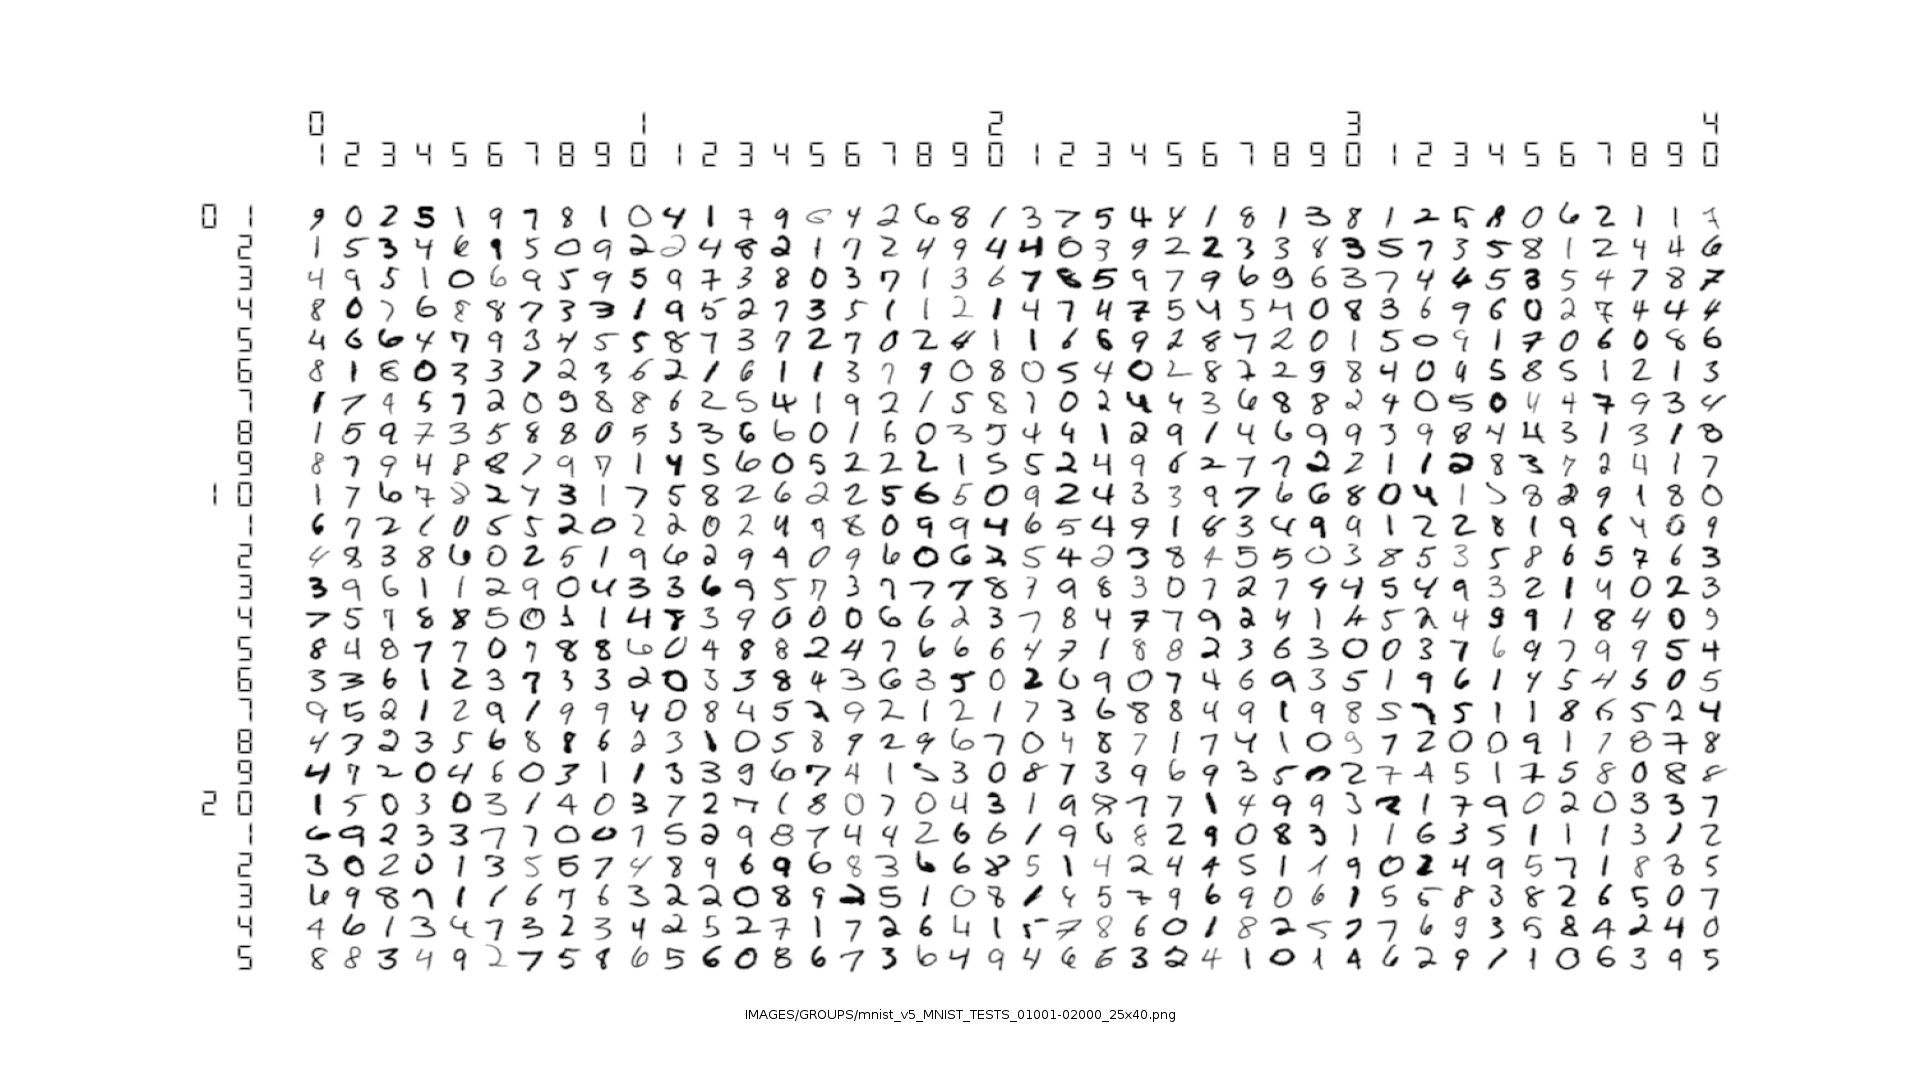 0 1 2 3 4
1 2 3 4 5 6 7 8 9 0 1 2 3 4 5 6 7 8 9 0 1 2 3 4 5 6 7 8 9 0 1 2 3 4 5 6 7 8 9 0
0 1 9 0 2 5 1 9 7 8 1 0 4 1 7 9 6 4 2 6 8 1 3 7 5 4 4 1 8 1 3 8 1 2 5 8 0 6 2 1 1 7
2 1 5 3 4 6 9 5 0 9 2 2 4 8 2 1 7 2 4 9 4 4 0 3 9 2 2 3 3 8 3 5 7 3 5 8 1 2 4 4 6
3 4 9 5 1 0 6 9 5 9 5 9 7 3 8 0 3 7 1 3 6 7 8 5 9 7 9 6 9 6 3 7 4 4 5 3 5 4 7 8 7
4 8 0 7 6 8 8 7 3 3 1 9 5 2 7 3 5 1 1 2 1 4 7 4 7 5 4 5 4 0 8 3 6 9 6 0 2 7 4 4 4
5 4 6 6 4 7 9 3 4 5 5 8 7 3 7 2 7 0 2 4 1 1 6 6 9 2 8 7 2 0 1 5 0 9 1 7 0 6 0 8 6
6 8 1 8 0 3 3 7 2 3 6 2 1 6 1 1 3 7 9 0 8 0 5 4 0 2 8 2 2 9 8 4 0 4 5 8 5 1 2 1 3
7 1 7 4 5 7 2 0 9 8 8 6 2 5 4 1 9 2 1 5 8 1 0 2 4 4 3 6 8 8 2 4 0 5 0 4 4 7 9 3 4
8 1 5 9 7 3 5 8 8 0 5 3 3 6 6 0 1 6 0 3 5 4 4 1 2 9 1 4 6 9 9 3 9 8 4 4 3 1 3 1 8
9 8 7 9 4 8 8 7 9 7 1 4 5 6 0 5 2 2 2 1 5 5 2 4 9 6 2 7 7 2 2 1 1 2 8 3 7 2 4 1 7
1 0 1 7 6 7 8 2 7 3 1 7 5 8 2 6 2 2 5 6 5 0 9 2 4 3 3 9 7 6 6 8 0 4 1 5 8 2 9 1 8 0
1 6 7 2 1 0 5 5 2 0 2 2 0 2 4 9 8 0 9 9 4 6 5 4 9 1 8 3 4 9 9 1 2 2 8 1 9 6 4 0 9
2 4 8 3 8 6 0 2 5 1 9 6 2 9 4 0 9 6 0 6 2 5 4 2 3 8 4 5 5 0 3 8 5 3 5 8 6 5 7 6 3
3 3 9 6 1 1 2 9 0 4 3 3 6 9 5 7 3 7 7 7 8 7 9 8 3 0 7 2 7 9 4 5 4 9 3 2 1 4 0 2 3
4 7 5 9 8 8 5 0 1 1 4 7 3 9 0 0 0 6 6 2 3 7 8 4 7 7 9 2 4 1 4 5 2 4 9 9 1 8 4 0 9
5 8 4 8 7 7 0 7 8 8 6 0 4 8 8 2 4 7 6 6 6 4 7 1 8 8 2 3 6 3 0 0 3 7 6 9 7 9 9 5 4
6 3 3 6 1 2 3 7 3 3 2 0 3 3 8 4 3 6 3 5 0 2 0 9 0 7 4 6 9 3 5 1 9 6 1 4 5 4 5 0 5
7 9 5 2 1 2 9 1 9 9 4 0 8 4 5 2 9 2 1 2 1 7 3 6 8 8 4 9 1 9 8 5 7 5 1 1 8 6 5 2 4
8 4 7 2 3 5 6 8 8 6 2 3 1 0 5 8 9 2 9 6 7 0 4 8 7 1 7 4 1 0 9 7 2 0 0 9 1 7 8 7 8
9 4 7 2 0 4 6 0 3 1 1 3 3 9 6 7 4 1 5 3 0 8 7 3 9 6 9 3 5 0 2 7 4 5 1 7 5 8 0 8 8
2 0 1 5 0 3 0 3 1 4 0 3 7 2 7 1 8 0 7 0 4 3 1 9 8 7 7 1 4 9 9 3 2 1 7 9 0 2 0 3 3 7
1 6 9 2 3 3 7 7 0 0 7 5 2 9 8 7 4 4 2 6 6 1 9 6 8 2 9 0 8 3 1 1 6 3 5 1 1 1 3 1 2
2 3 0 2 0 1 3 5 5 7 4 8 9 6 9 6 8 3 6 6 8 5 1 4 2 4 4 5 1 1 9 0 2 4 9 5 7 1 8 8 5
3 6 9 8 7 1 1 6 7 6 3 2 2 0 8 9 2 5 1 0 8 1 4 5 7 9 6 9 0 6 1 5 5 8 3 8 2 6 5 0 7
4 4 6 1 3 4 7 3 2 3 4 2 5 2 7 1 7 2 6 4 1 5 7 8 6 0 1 8 2 5 7 7 6 9 3 5 8 4 2 4 0
5 8 8 3 4 9 2 7 5 8 6 5 6 0 8 6 7 3 6 4 9 4 6 6 3 2 4 1 0 1 4 6 2 9 1 1 0 6 3 9 5
IMAGES/GROUPS/mnist_v5_MNIST_TESTS_01001-02000_25x40.png